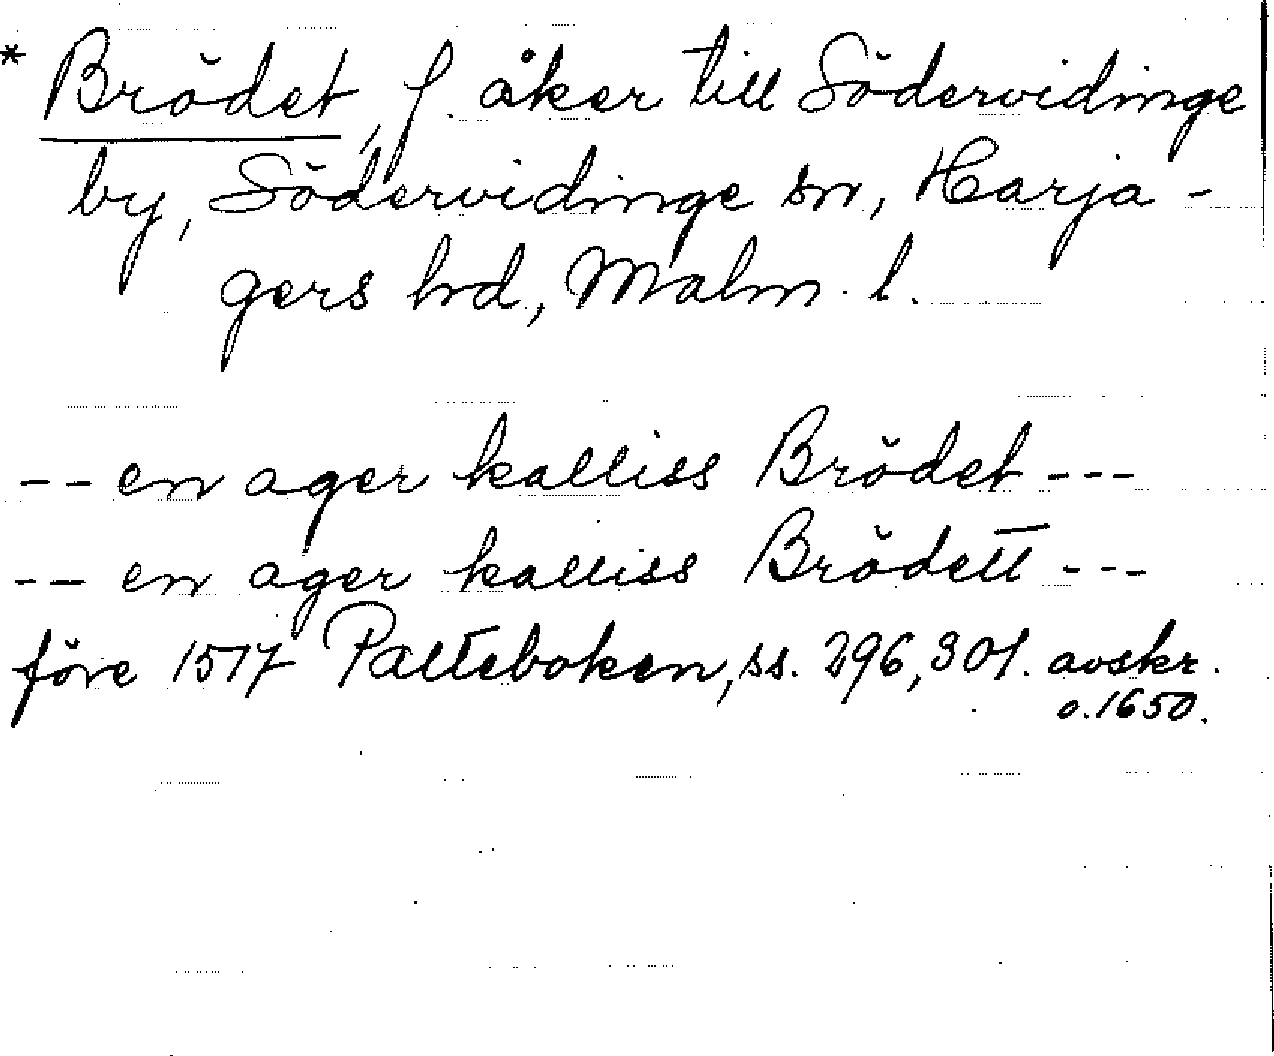 * Brödet, f. åker till Södervidinge
by, Södervidinge sn, Harja-
gers hd, Malm. l.
-- en ager kalliss Brödet ---
-- en ager kalliss Brödett ---
före 1517 Palteboken, ss. 296, 301. avskr.
o. 1650.